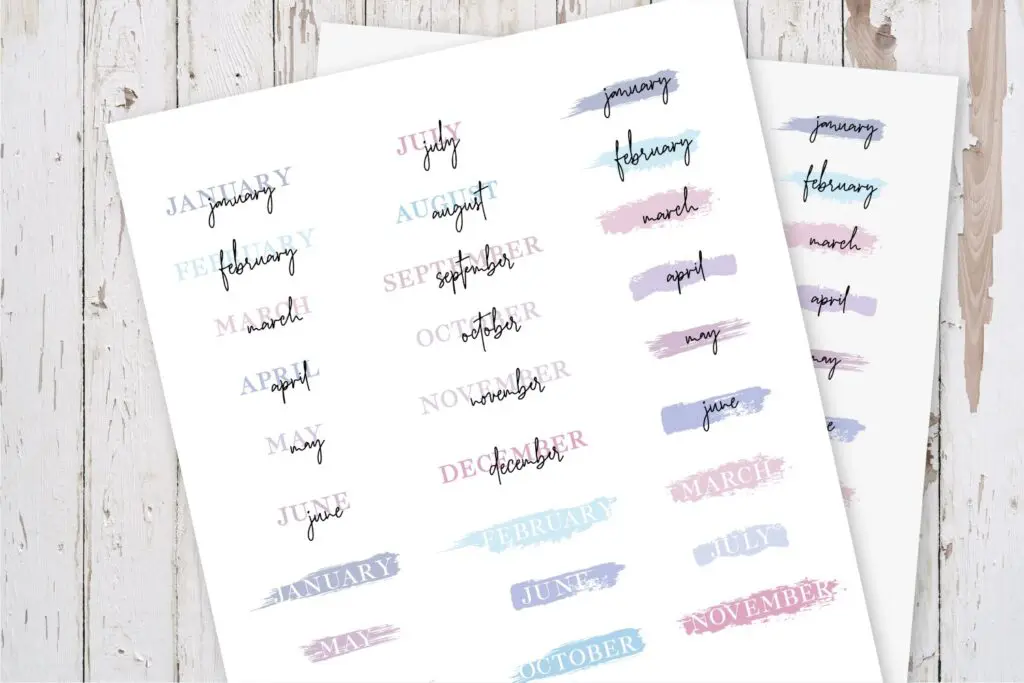 JANUARY
january
FEBRUARY
february
MARCH
march
APRIL
april
MAY
may
JUNE
june
JULY
july
AUGUST
august
SEPTEMBER
september
OCTOBER
october
NOVEMBER
november
DECEMBER
december
january
february
march
april
may
june
JANUARY
FEBRUARY
MARCH
MAY
JUNE
JULY
OCTOBER
NOVEMBER
january
february
march
april
may